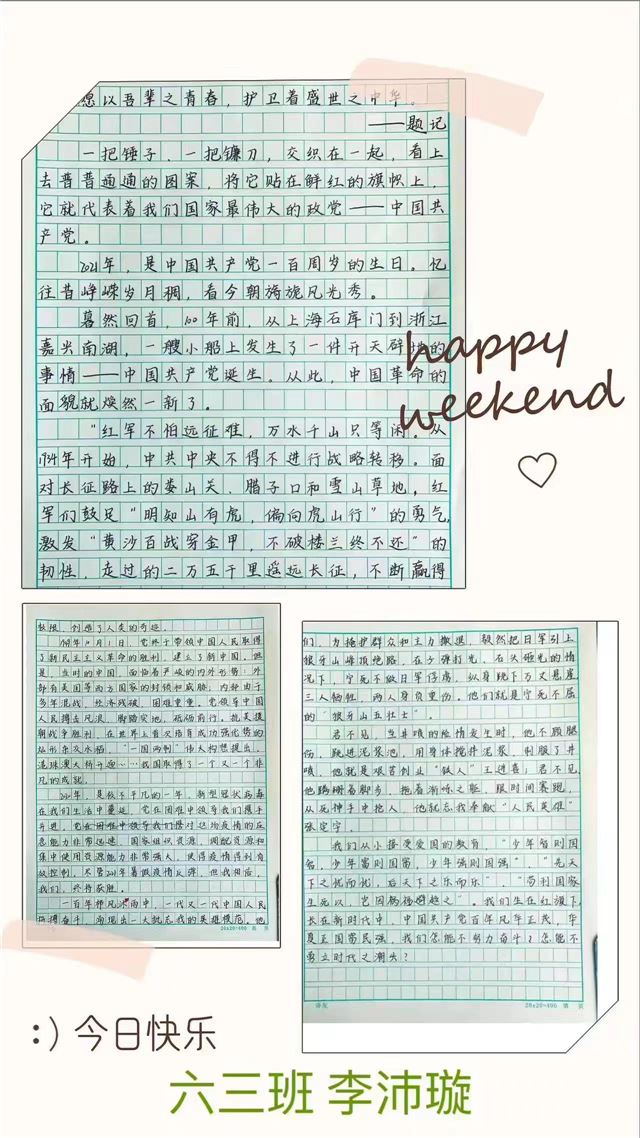 愿以吾辈之青春，护卫着盛世之中华。
——题记
一把锤子，一把镰刀，交织在一起，看上
去普普通通的图案，将它贴在鲜红的旗帜上，
它就代表着我们国家最伟大的政党——中国共
产党。
2021年，是中国共产党一百周岁的生日。忆
往昔峥嵘岁月稠，看今朝旖旎风光秀。
蓦然回首，100年前，从上海石库门到浙江
嘉兴南湖，一艘小船上发生了一件开天辟地的
事情——中国共产党诞生。从此，中国革命的
面貌就焕然一新了。
“红军不怕远征难，万水千山只等闲。”从
1934年开始，中共中央不得不进行战略转移。面
对长征路上的娄山关、腊子口和雪山草地，红
军们鼓足“明知山有虎，偏向虎山行”的勇气，
激发“黄沙百战穿金甲，不破楼兰终不还”的
韧性，走过的二万五千里遥远长征，不断赢得
happy
weekend
数据，创造了人类的奇迹。
1949年10月1日，党终于带领中国人民取得
了新民主主义革命的胜利，建立了新中国。但
是，当时的中国，面临着严峻的内外形势：外
部有美国等西方国家的封锁和威胁，内部由于
多年混战，经济残破，困难重重。党领导中国
人民搏击风浪，脚踏实地，砥砺前行，抗美援
朝战争胜利，在世界上首次培育成功强优势的
籼形杂交水稻，“一国两制”伟大构想提出，
港珠澳大桥开通……我国取得了一个又一个非
凡的成就。
年，是极不平凡的一年，新型冠状病毒
在我们生活中蔓延，党在困难中领导我们携手
并进，党在困难中领导我们携对这场疫情的应
急能力非常迅速，国家组织资源、调配资源和
集中使用资源能力非常强大，使得疫情得到有
效控制。尽管2021年暑假疫情反弹，但我相信，
我们，终将获胜。
一百年栉风沐雨中，一代又一代中国人民
接续奋斗，涌现出一大批忘我的英雄模范。他
20×20=400
们，为掩护群众和主力撤退，毅然把日军引上
狼牙山峰顶绝路，在子弹打光，石头砸光的情
况下，宁死不做日军俘虏，纵身跳下万丈悬崖，
三人牺牲，两人身负重伤。他们就是宁死不屈
的“狼牙山五壮士”。
君不见，当井喷的险情发生时，他不顾腿
伤，跳进泥浆池，用身体搅拌泥浆，制服了井
喷，他就是艰苦创业“铁人”王进喜；君不见，
他蹒跚着脚步，拖着渐冻之躯，跟时间赛跑，
从死神手中抢人，他就忘我奉献“人民英雄”
张定宇。
我们从小接受爱国的教育，“少年智则国
智，少年富则国富，少年强则国强”、“先天
下之忧而忧，后天下之乐而乐”、“苟利国家
生死以，岂因祸福避趋之”。我们生在红旗下，
长在新时代中，中国共产党百年风华正茂，华
夏正国富民强，我们怎能不努力奋斗？怎能不
勇立时代之潮头？
20×20=400
:) 今日快乐
六三班 李沛璇